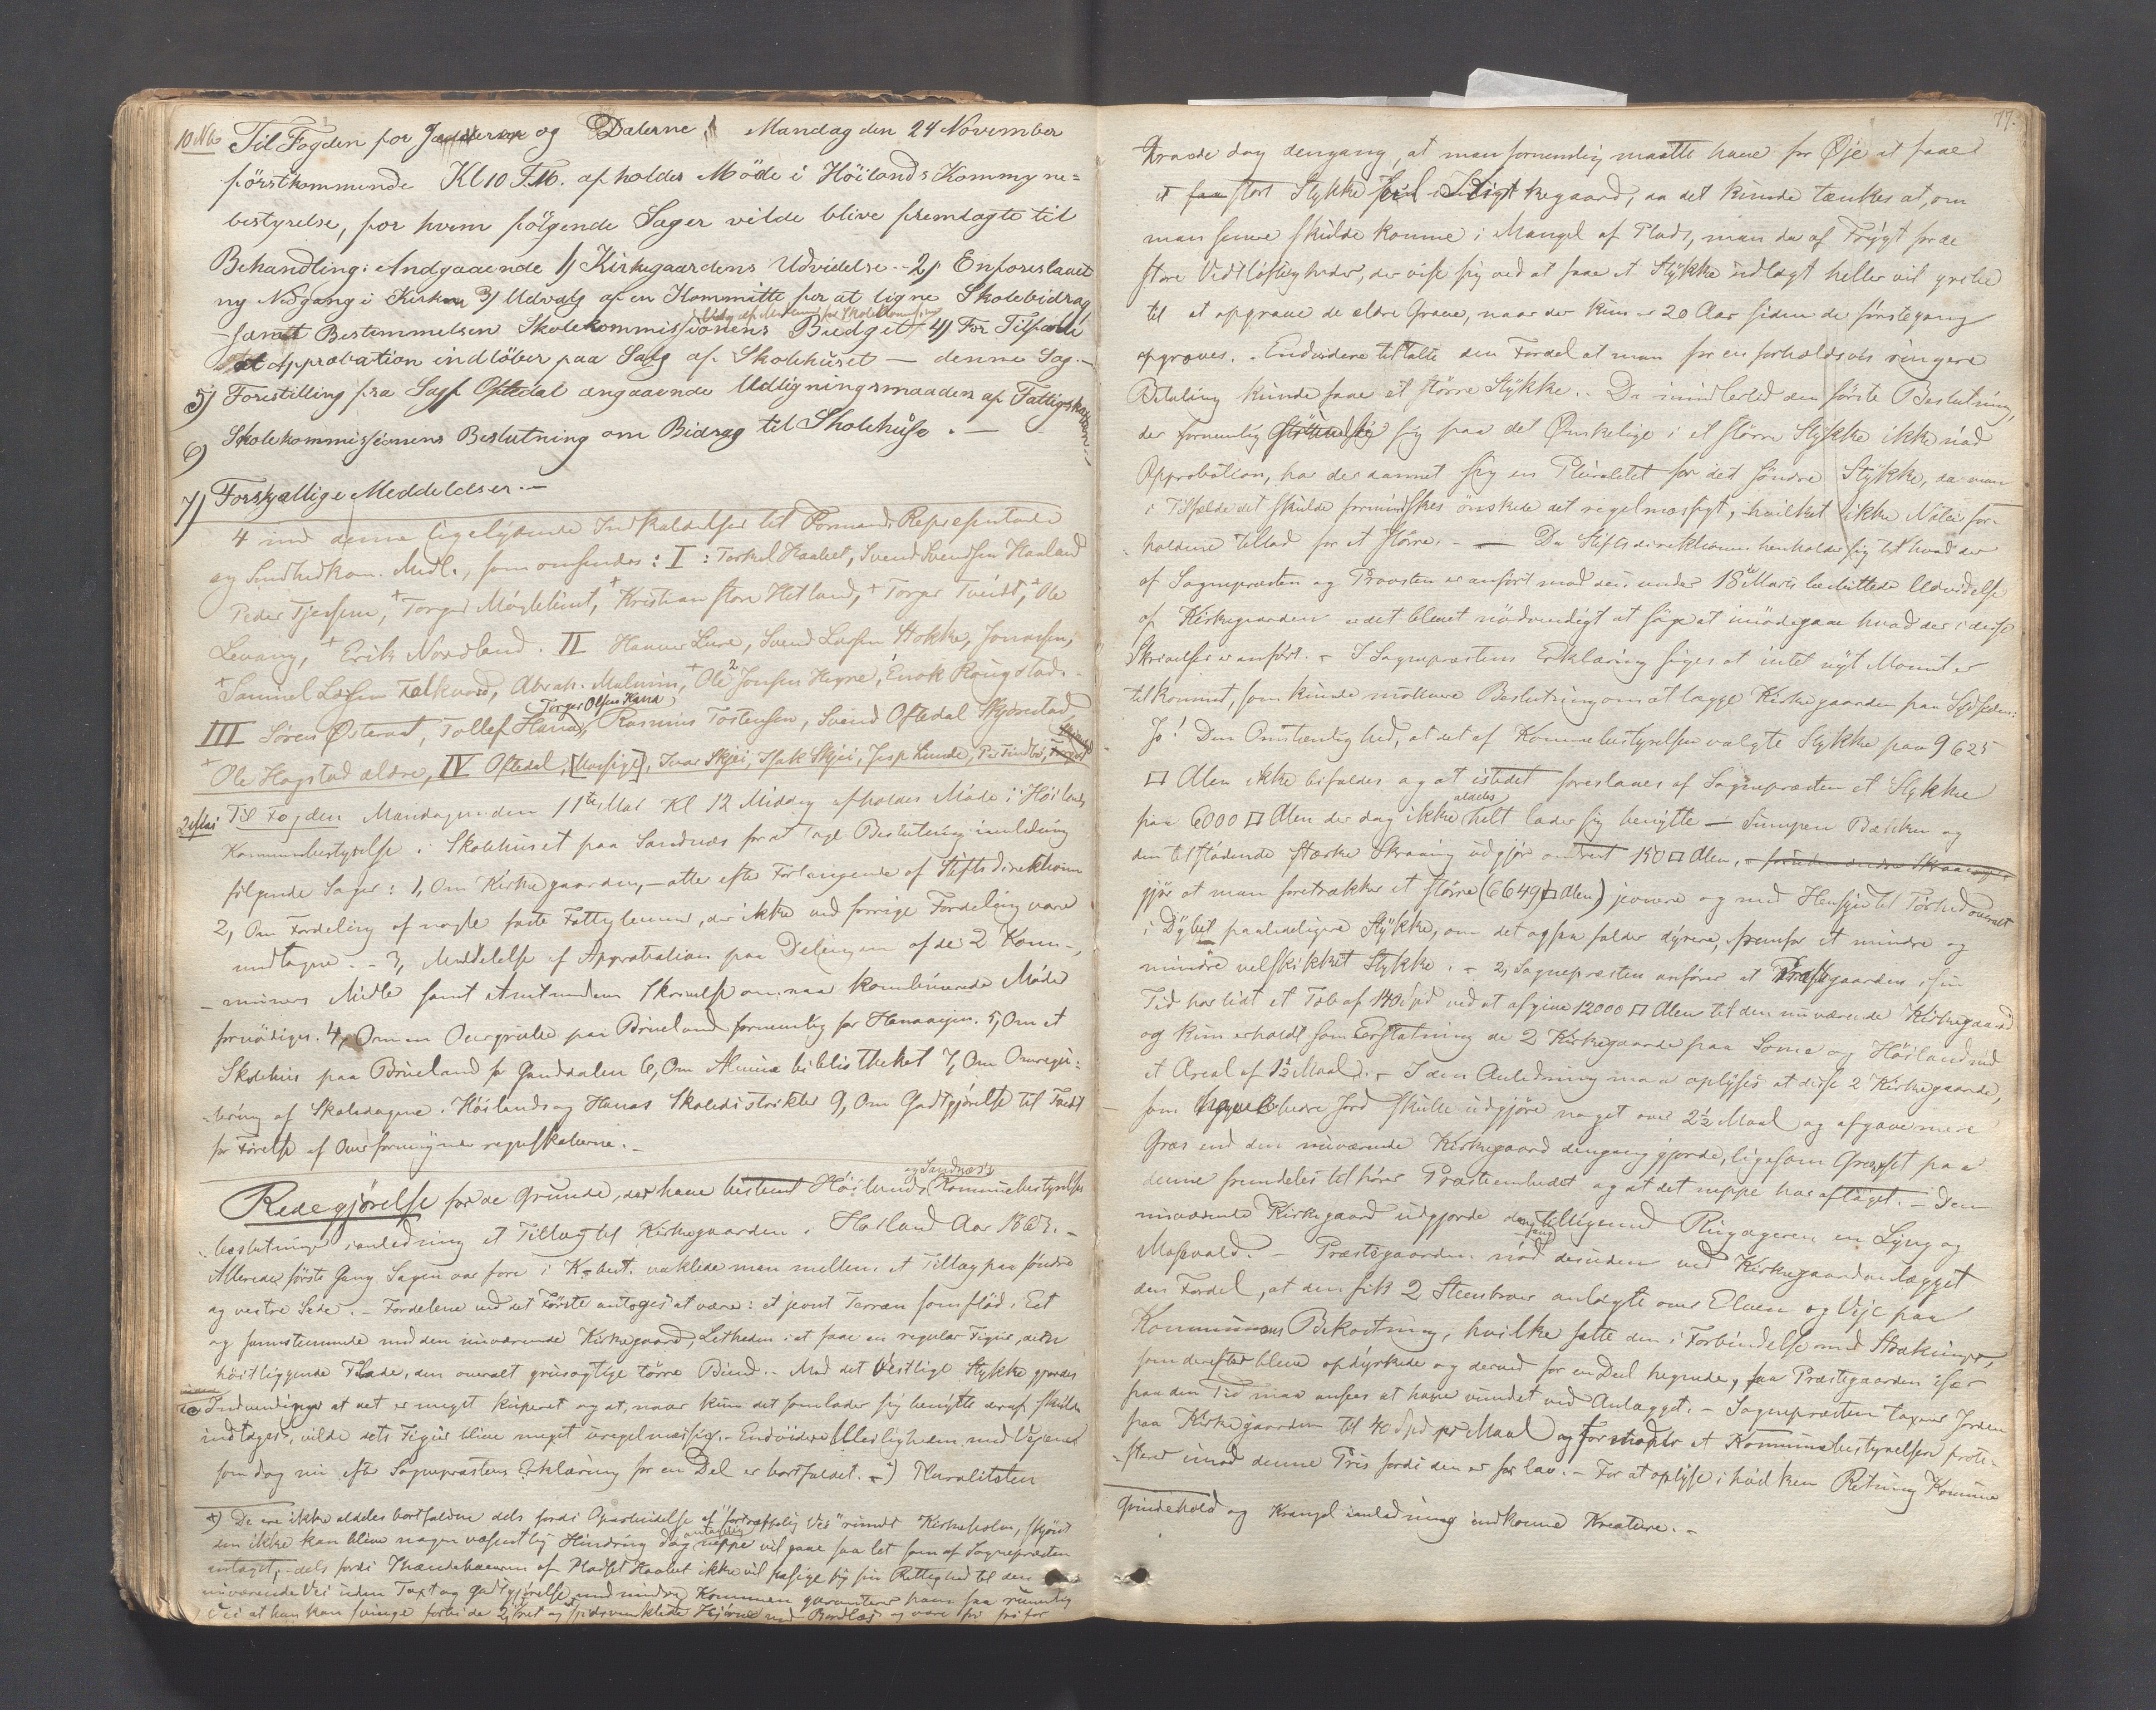 10 Nbr Til Fogden for Jædderen og Dalerne. Mandag den 24 November
förstkommende Kl 10 F.M. afholdes Möde i Höilands Kommune-
bestyrelse, for hvem fölgende Sager vilde blive fremlagte til
Behandling: Andgaaende 1) Kirkegaardens Udvidelse - 2) En foreslaaet
ny Nedgang i Kirken 3) Udvalg af en Kommitte for at ligne Skolebidrag
samt Bestemmelsen Skolekommissionens Budget 4) For Tilfælde
at Approbation indlöber paa Salg af Skolehuset — denne Sag. —
5) Forestilling fra Sagf Oftedal angaaende Udligningsmaaden af Fattigskatten
6) Skolekommissionens Beslutning om Bidrag til Skolehuse. —
7) Forskjællige Meddelelser. —
4 med denne ligelydende Indkaldelser til Formænd, Repræsentante
og Sundhedkom. Medl., som omsendes: I: Torkel Haabet, Svend Svendsen Haaland
Peder Tjessem, + Torger Möglebust, + Kristian store Hetland, + Torger Tveidt, + Ole
Levang, + Erik Nordland. II Hanver Lure, Svend Larsen Stokke, Jonassen,
+ Samuel Larsen Folkvord, Abrah. Malmin, + Ole Jonsen Hegre, Enok Raugstad.
Torger Olsen Hana
III Sören Østeraat, Tollef Hana, Rasmus Tostensen, Svend Oftedal Skjævestad
+ Ole Hogstad ældre, IV Oftedal, [Norsige], Ivar Skjei, Isak Skjei, Jesp Lunde,
2 Mai Til Fogden Mandagen den 11te Mai Kl 12 Middag afholdes Möde i Höilands
Kommunebestyrelse i Skolehuset paa Sandnæs for at tage Beslutning i anledning
fölgende Sager: 1, Om Kirkegaarden, — atter efter Forlangende af Stiftsdirektionen
2, Om Fordeling af nogle faste Fattiglemmer, der ikke ved forrige Fordeling vare
medtagne. — 3, Meddelelse af Approbation paa Delingen af de 2 Kom-
muners Midler samt Amtmandens Skrivelse om naar kombinerede Möder
fornödiges. 4, Om en Overpröve paa Brueland fornemlig for Hanaaijen. 5, Om et
Skolehus paa Brueland for Ganddalen 6, Om Almuebibliotheket 7, Om Omregu-
lering af Skoledagene i Höilands og Hanas Skoledistrikter 9, Om Godtgjörelse til Tveidt
for Förelse af Overformynder regnskaberne. —
og Sandnæs's
Redegjörelse for de Grunde, der have bestemt Höilands Kommunebestyrelses
beslutninger i anledning et Tillæg til Kirkegaarden i Höiland Aar 1863. —
Allerede förste Gang Sagen var fore i K-best. vaklede man mellem et Tillæg paa söndre
og vestre Side. — Fordelene ved det Förste antoges at være: et jevnt Terræn som stöd i Eet
og samstemmede med den nuværende Kirkegaard, Letheden i at faae en regulær Figur, dets
höitliggende Flade, den overalt grusagtige törre Bund. — Mod det Vestlige Stykke gjordes
Indvendinger at det er meget kuperet og at, naar kun det som lader sig benytte deraf skulde
indtages, vilde dets Figur blive meget uregelmæssig. — Endvidere Uleiligheden med Veiene
som dog nu efter Sognepræstens Erklæring for en Del er bortfaldet. — *) Pluraliteten
*) De ere ikke aldeles bortfaldne dels fordi Oparbeidelse af "fortræffelig Vei" rundt Kirkeholm, skjönt
den ikke kan blive nogen væsentlig Hindring dog neppe vil gaae saa let som af Sognepræsten
antaget, — dels fordi Ihændehaveren af Pladset Haabet ikke vil frasige sig sin Rettighed til den
nuværende Vei uden Taxt og Godtgjörelse med mindre Kommunen garanterer ham saa rummelig
Vei at han kan svinge forbi de 2 skret og spidsvinklede Hjörner med Bordlas og være fri for
77.
troede dog dengang, at man fornemlig maatte have for Øje at faae
et stort Stykke til Kirkegaard, da det kunde tænkes at, om
man senere skulde komme i Mangel af Plads, man da af Frygt for de
store Vidtlöftigheder, der vise sig ved at faae et Stykke udlagt heller vil gribe
til at opgrave de ældre Grave, naar der kun er 20 Aar siden de förstegang
opgroves. — Endvidere tiltalte den Fordel at man for en forholdsvis ringere
Betaling kunde faae et större Stykke. — Da imidlertid den förste Beslutning,
der fornemlig støttede sig paa det Ønskelige i et större Stykke ikke naaede
Approbation, har der dannet sig en Pluralitet for det Söndre Stykke, da man
i Tilfælde det skulde formindskes önskede det regelmæssigt, hvilket ikke Noles for-
holdene tillod for et större. — — Da Stiftsdirektionen henholder sig til hvad der
af Sognepræsten og Provsten er anfört mod den under 18de Marts besluttede Udvidelse
af Kirkegaarden er det blevet nödvendigt at söge at imödegaae hvad der i disse
Skrivelser er anfört. — I Sognepræstens Erklæring siges at intet nyt Moment er
tilkommet, som kunde motivere Beslutning om at lægge Kirkegaarden paa Sydsiden:
Jo! Den Omstændighed, at det af Kommunebestyrelsen valgte Stykke paa 9625
□ Alen ikke bifaldes og at istedet foreslaaes af Sognepræsten et Stykke
aldeles
paa 6000 □ Alen der dog ikke helt lader sig benytte — Sumpen Bækken og
den tilstödende stærke Skraaning udgjör omtrent 150 □ Alen,
gjör at man foretrækker et större (6649 □ Alen) jevnere og med Hensyn til Törhed overalt
i Dybet paalideligere Stykke, om det ogsaa falder dyrere, fremfor et mindre og
mindre velskikket Stykke. — 2, Sognepræsten anförer at Præstegaarden i sin
Tid har lidt et Tab af 140 Spd ved at afgive 12000 □ Alen til den nuværende Kirkegaard
og kun erholdt som Erstatning de 2 Kirkegaarde paa Soma og Höiland med
et Areal af 1½ Maal. — I den Anledning maa oplyses at disse 2 Kirkegaarde,
som have bedre Jord skulle udgjöre noget over 2½ Maal og afgave mere
Græs end den nuværende Kirkegaard dengang gjorde, ligesom Græsset paa
denne fremdeles tilhörer Præsteembedet og at det neppe har aftaget. — Den
nuværende Kirkegaard udgjorde dengang tilligemed Ringageren en Lyng og
Mosevold. — Præstegaarden nöd desuden ved Kirkegaardanlægget
den Fordel, at den fik 2 Steenbroer anlagte over Elven og Veje paa
Kommunens Bekostning, hvilke satte den i Forbindelse med Strækninger,
som derefter bleve opdyrkede og derved for en Deel hegnede, saa Præstegaarden især
paa den Tid maa ansees at have vundet ved Anlægget. — Sognepræsten taxerer Jorden
paa Kirkegaarden til 40 Spd pr Maal og formoder at Kommunebestyrelsen prote-
sterer imod denne Pris fordi den er for lav. — For at oplyse i hvilken Retning Kommune
Grindehold og Krangel i anledning indkomne Kreature. —